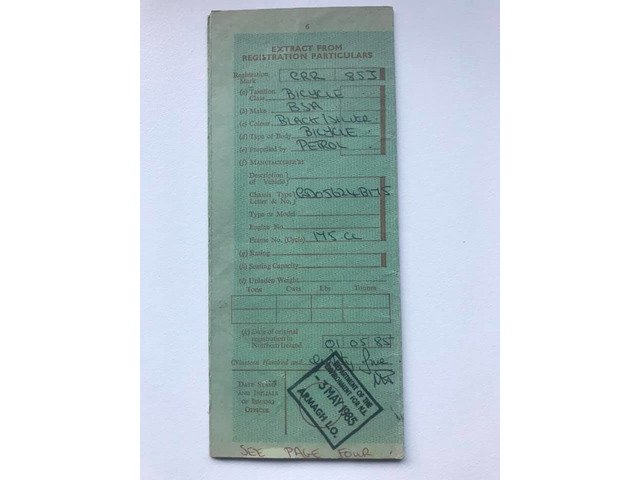 6
EXTRACT FROM
REGISTRATION PARTICULARS
Registration Mark CRR 85J
(a) Taxation Class BICYCLE
(b) Make BSA
(c) Colour BLACK/SILVER
(d) Type of Body BICYCLE
(e) Propelled by PETROL
(f) MANUFACTURER'S
Description of Vehicle
Chassis Type Letter & No.
Type or Model
Engine No.
Frame No. (Cycle) 175 cc
(g) Rating
(h) Seating Capacity
(i) Unladen Weight
Tons Cwts Lbs Tonnes
(k) Date of original
registration in
Northern Ireland 01 05 85
Nineteen Hundred and eighty five
DATE STAMP
AND INITIALS
OF ISSUING
OFFICER
DEPARTMENT OF THE
ENVIRONMENT FOR N.I.
-3 MAY 1985
ARMAGH L.O.
SEE PAGE FOUR